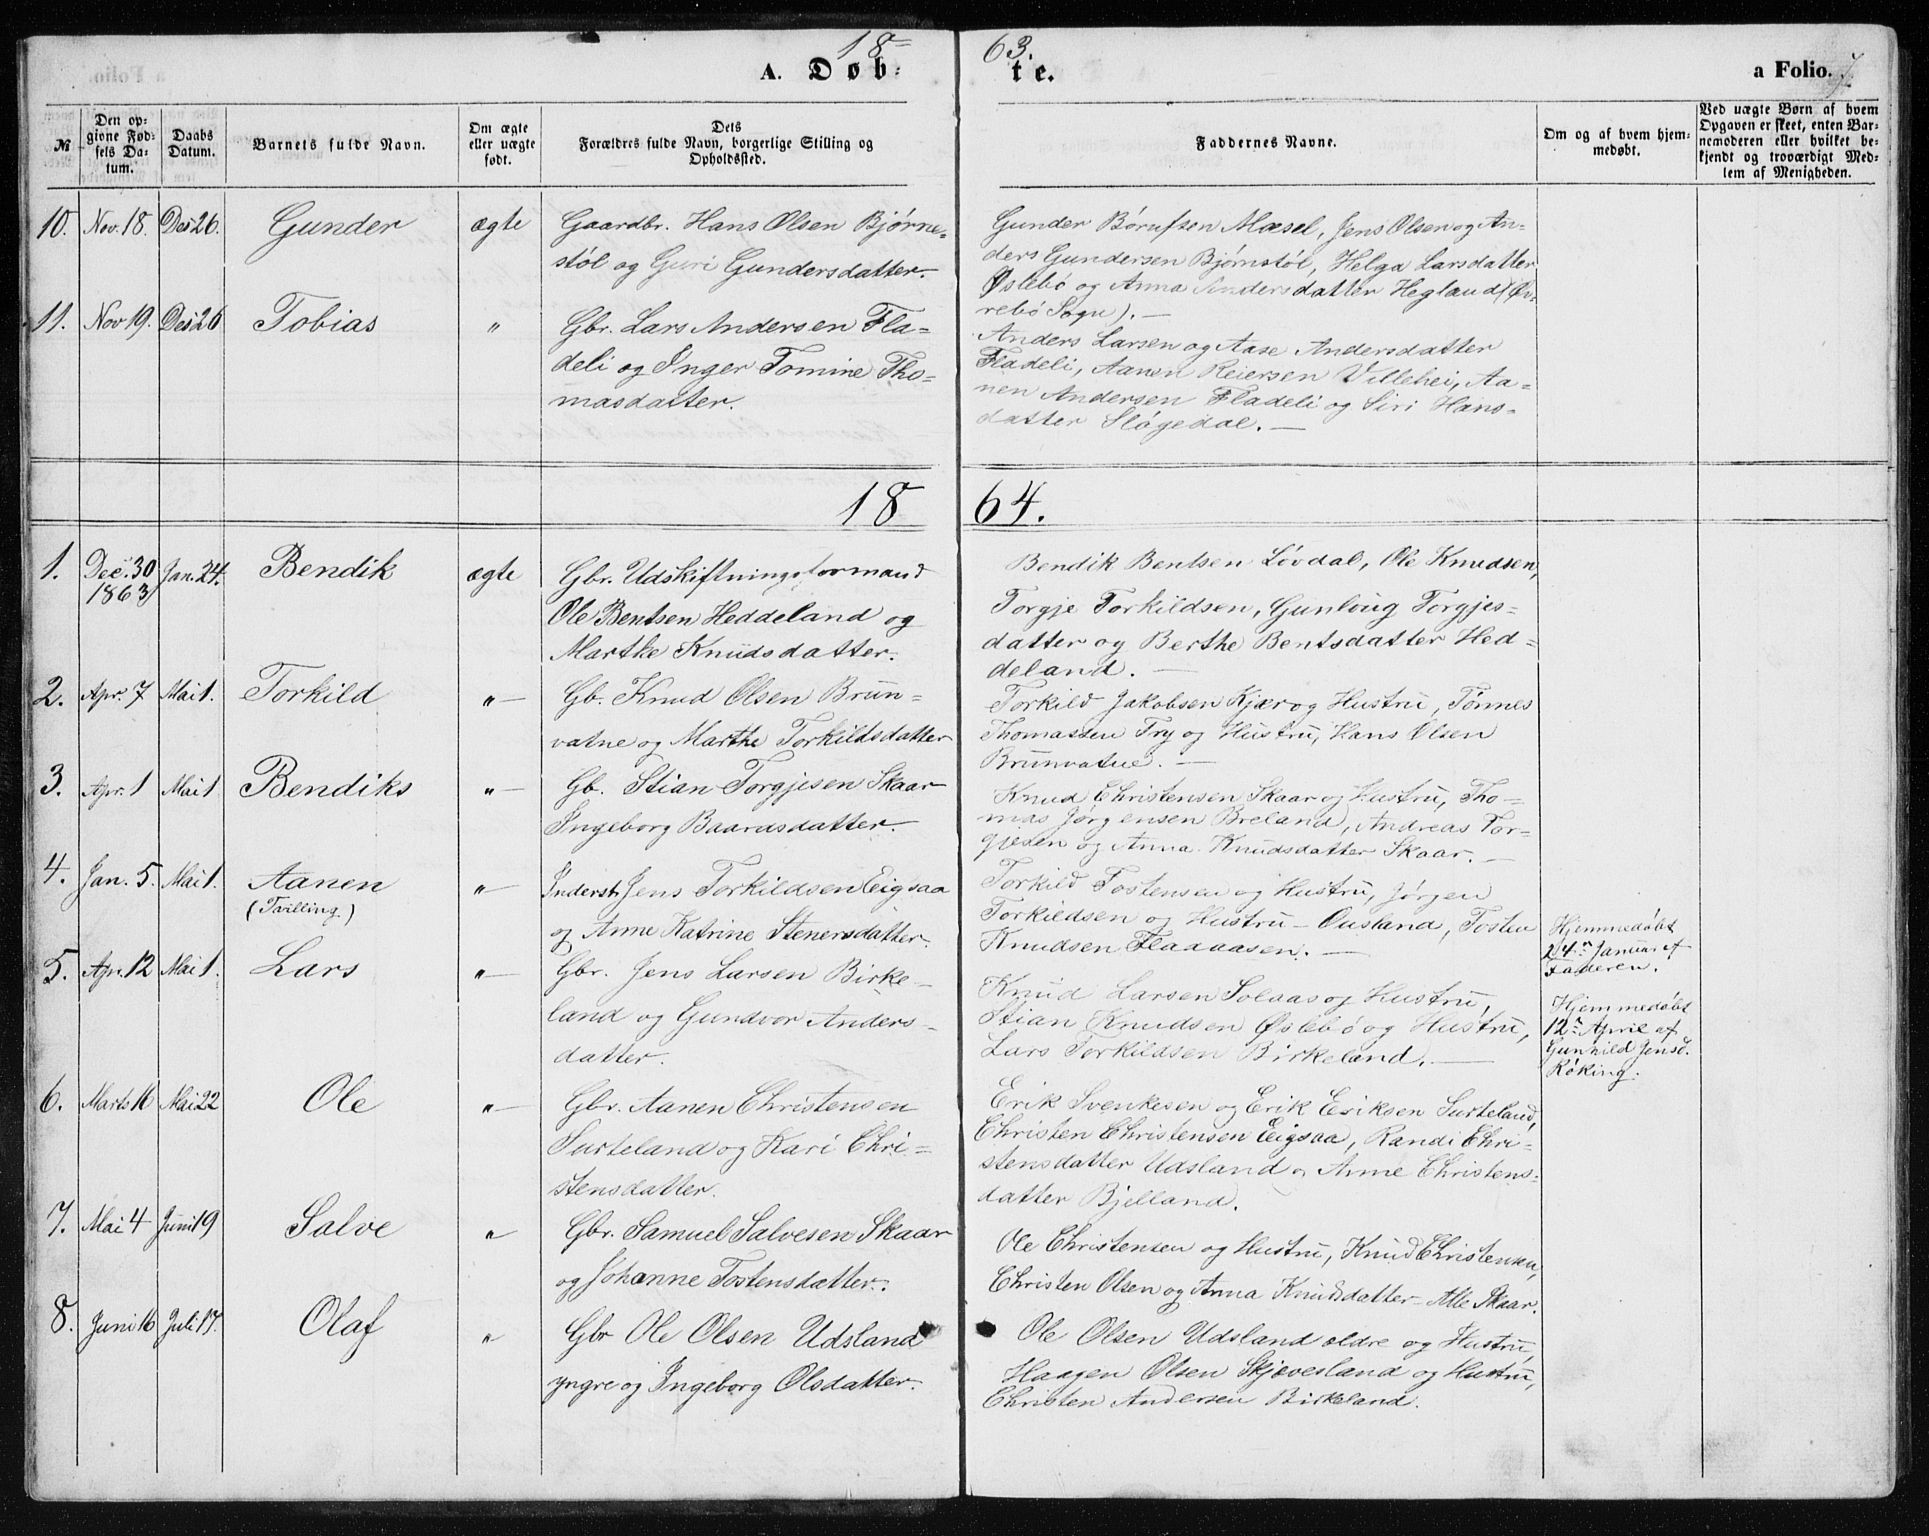 1863.
A. Døbte.
a Folio. 7.
№
Den opgivne Fødsels Datum.
Daabs Datum.
Barnets fulde Navn.
Om ægte eller uægte født.
Dets Forældres fulde Navn, borgerlige Stilling og Opholdssted.
Faddernes Navne.
Om og af hvem hjemmedøbt.
Ved uægte Børn af hvem Opgaven er skeet, enten Barnemoderen eller hvilket bekjendt og troværdigt Medlem af Menigheden.
10. Nov. 18. Des 26. Gunder ægte
Gaardbr. Hans Olsen Bjørne-
støl og Guri Gundersdatter.
Gunder Mæsel, Jens Olsen og An-
ders Gundersen Bjørnstøl, Helga Larsdatter
Øslebö og Anna Andersdatter Hegland (Øv-
rebö Sogn). —
11. Nov 19. Des 26 Tobias "
Gbr. Lars Andersen Fla-
deli og Inger Tomine Tho-
masdatter.
Anders Larsen og Aase Andersdatter
Fladeli, Aanen Reiersen Villehei, Aa-
nen Andersen Fladeli og Siri Hans-
datter Slögedal. —
1864.
1. Dec. 30 1863 Jan. 24. Bendik ægte
Gbr. Udskiftningsformand
Ole Bentsen Heddeland og
Marthe Knudsdatter.
Bendik Bentsen Lövdal, Ole Knudsen,
Torgje Torkildsen, Gunloug Torgjes-
datter og Berthe Bentsdatter Hed-
deland. —
2. Apr. 7 Mai 1. Torkild "
Gb. Knud Olsen Brun-
vatne og Marthe Torkildsdatter
Torkild Jakobsen Kjær og Hustru, Tønnes
Thomassen Fry og Hustru, Hans Olsen
Brunvatne. —
3. Apr. 1 Mai 1 Bendiks "
Gb. Stian Torgjesen Skaar
Ingeborg Baardsdatter.
Knud Christensen Skaar og Hustru, Tho-
mas Jørgensen Breland, Andreas Tor-
gjesen og Anna Knudsdatter Skaar. —
4. Jan. 5. Mai 1. Aanen "
(Tvilling)
Inderst Jens Torkildsen Eigsaa
og Anne Katrine Stenersdatter.
Torkild Tostensen og Hustru, Jørgen
Torkildsen og Hustru - Ousland, Tosten
Knudsen Flaaaasen. —
Hjemmedøbt
24de Januar af
Faderen.
5. Apr. 12 Mai 1. Lars "
Gbr. Jens Larsen Birke-
land og Gundvor Anders-
datter.
Knud Larsen Solaas og Hustru,
Stian Knudsen Øslebö og Hustru,
Lars Torkildsen Birkeland. —
Hjemmedøbt
12te April af
Gunhild Jensd.
Röking.
6. Marts 16 Mai 22 Ole "
Gbr. Aanen Christensen
Surteland og Kari Chri-
stensdatter.
Erik Svenkesen og Erik Eriksen Surteland,
Christen Christensen Eigsaa, Randi Chri-
stensdatter Udsland og Anne Christens-
datter Bjelland.
7. Mai 4 Juni 19 Salve "
Gbr. Samuel Salvesen Skaar
og Johanne Tostensdatter.
Ole Christensen og Hustru, Knud Christensen,
Christen Olsen og Anna Knudsdatter - Alle Skaar.
8. Juni 16 Juli 17. Olaf "
Gbr Ole Olsen Udsland
yngre og Ingeborg Olsdatter.
Ole Olsen Udsland ældre og Hustru,
Haagen Olsen Skjævesland og Hustru,
Christen Andersen Birkeland.